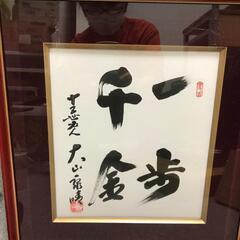 一歩
千金
十五世名人 大山康晴